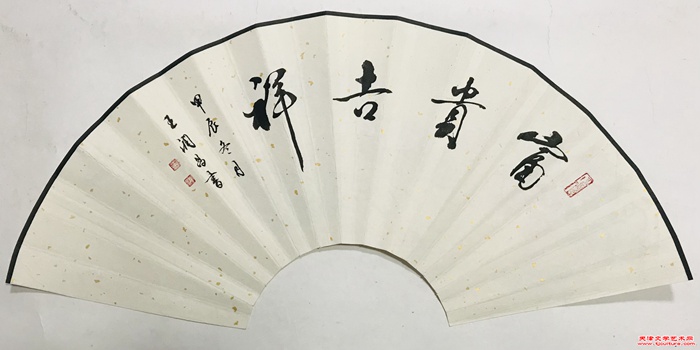 富贵吉祥
甲辰冬月
王润昌书
天津文学艺术网
www.tjculture.com